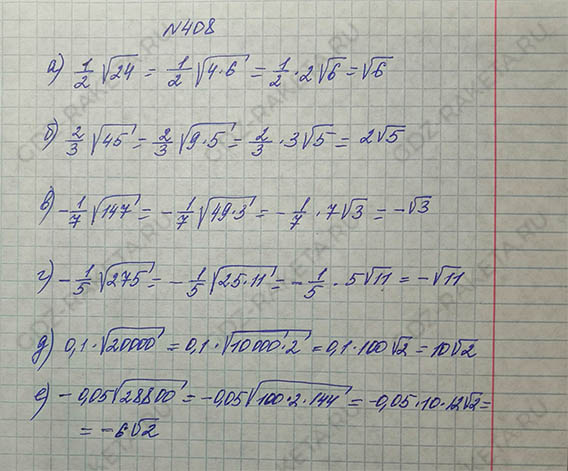 №408
а) 1/2 √24 = 1/2 √(4·6) = 1/2 · 2√6 = √6
б) 2/3 √45 = 2/3 √(9·5) = 2/3 · 3√5 = 2√5
в) -1/7 √147 = -1/7 √(49·3) = -1/7 · 7√3 = -√3
г) -1/5 √275 = -1/5 √(25·11) = -1/5 · 5√11 = -√11
д) 0,1·√20000 = 0,1·√(10000·2) = 0,1·100√2 = 10√2
е) -0,05√28800 = -0,05√(100·2·144) = -0,05·10·12√2 =
= -6√2
GDZ-RAKETA.RU